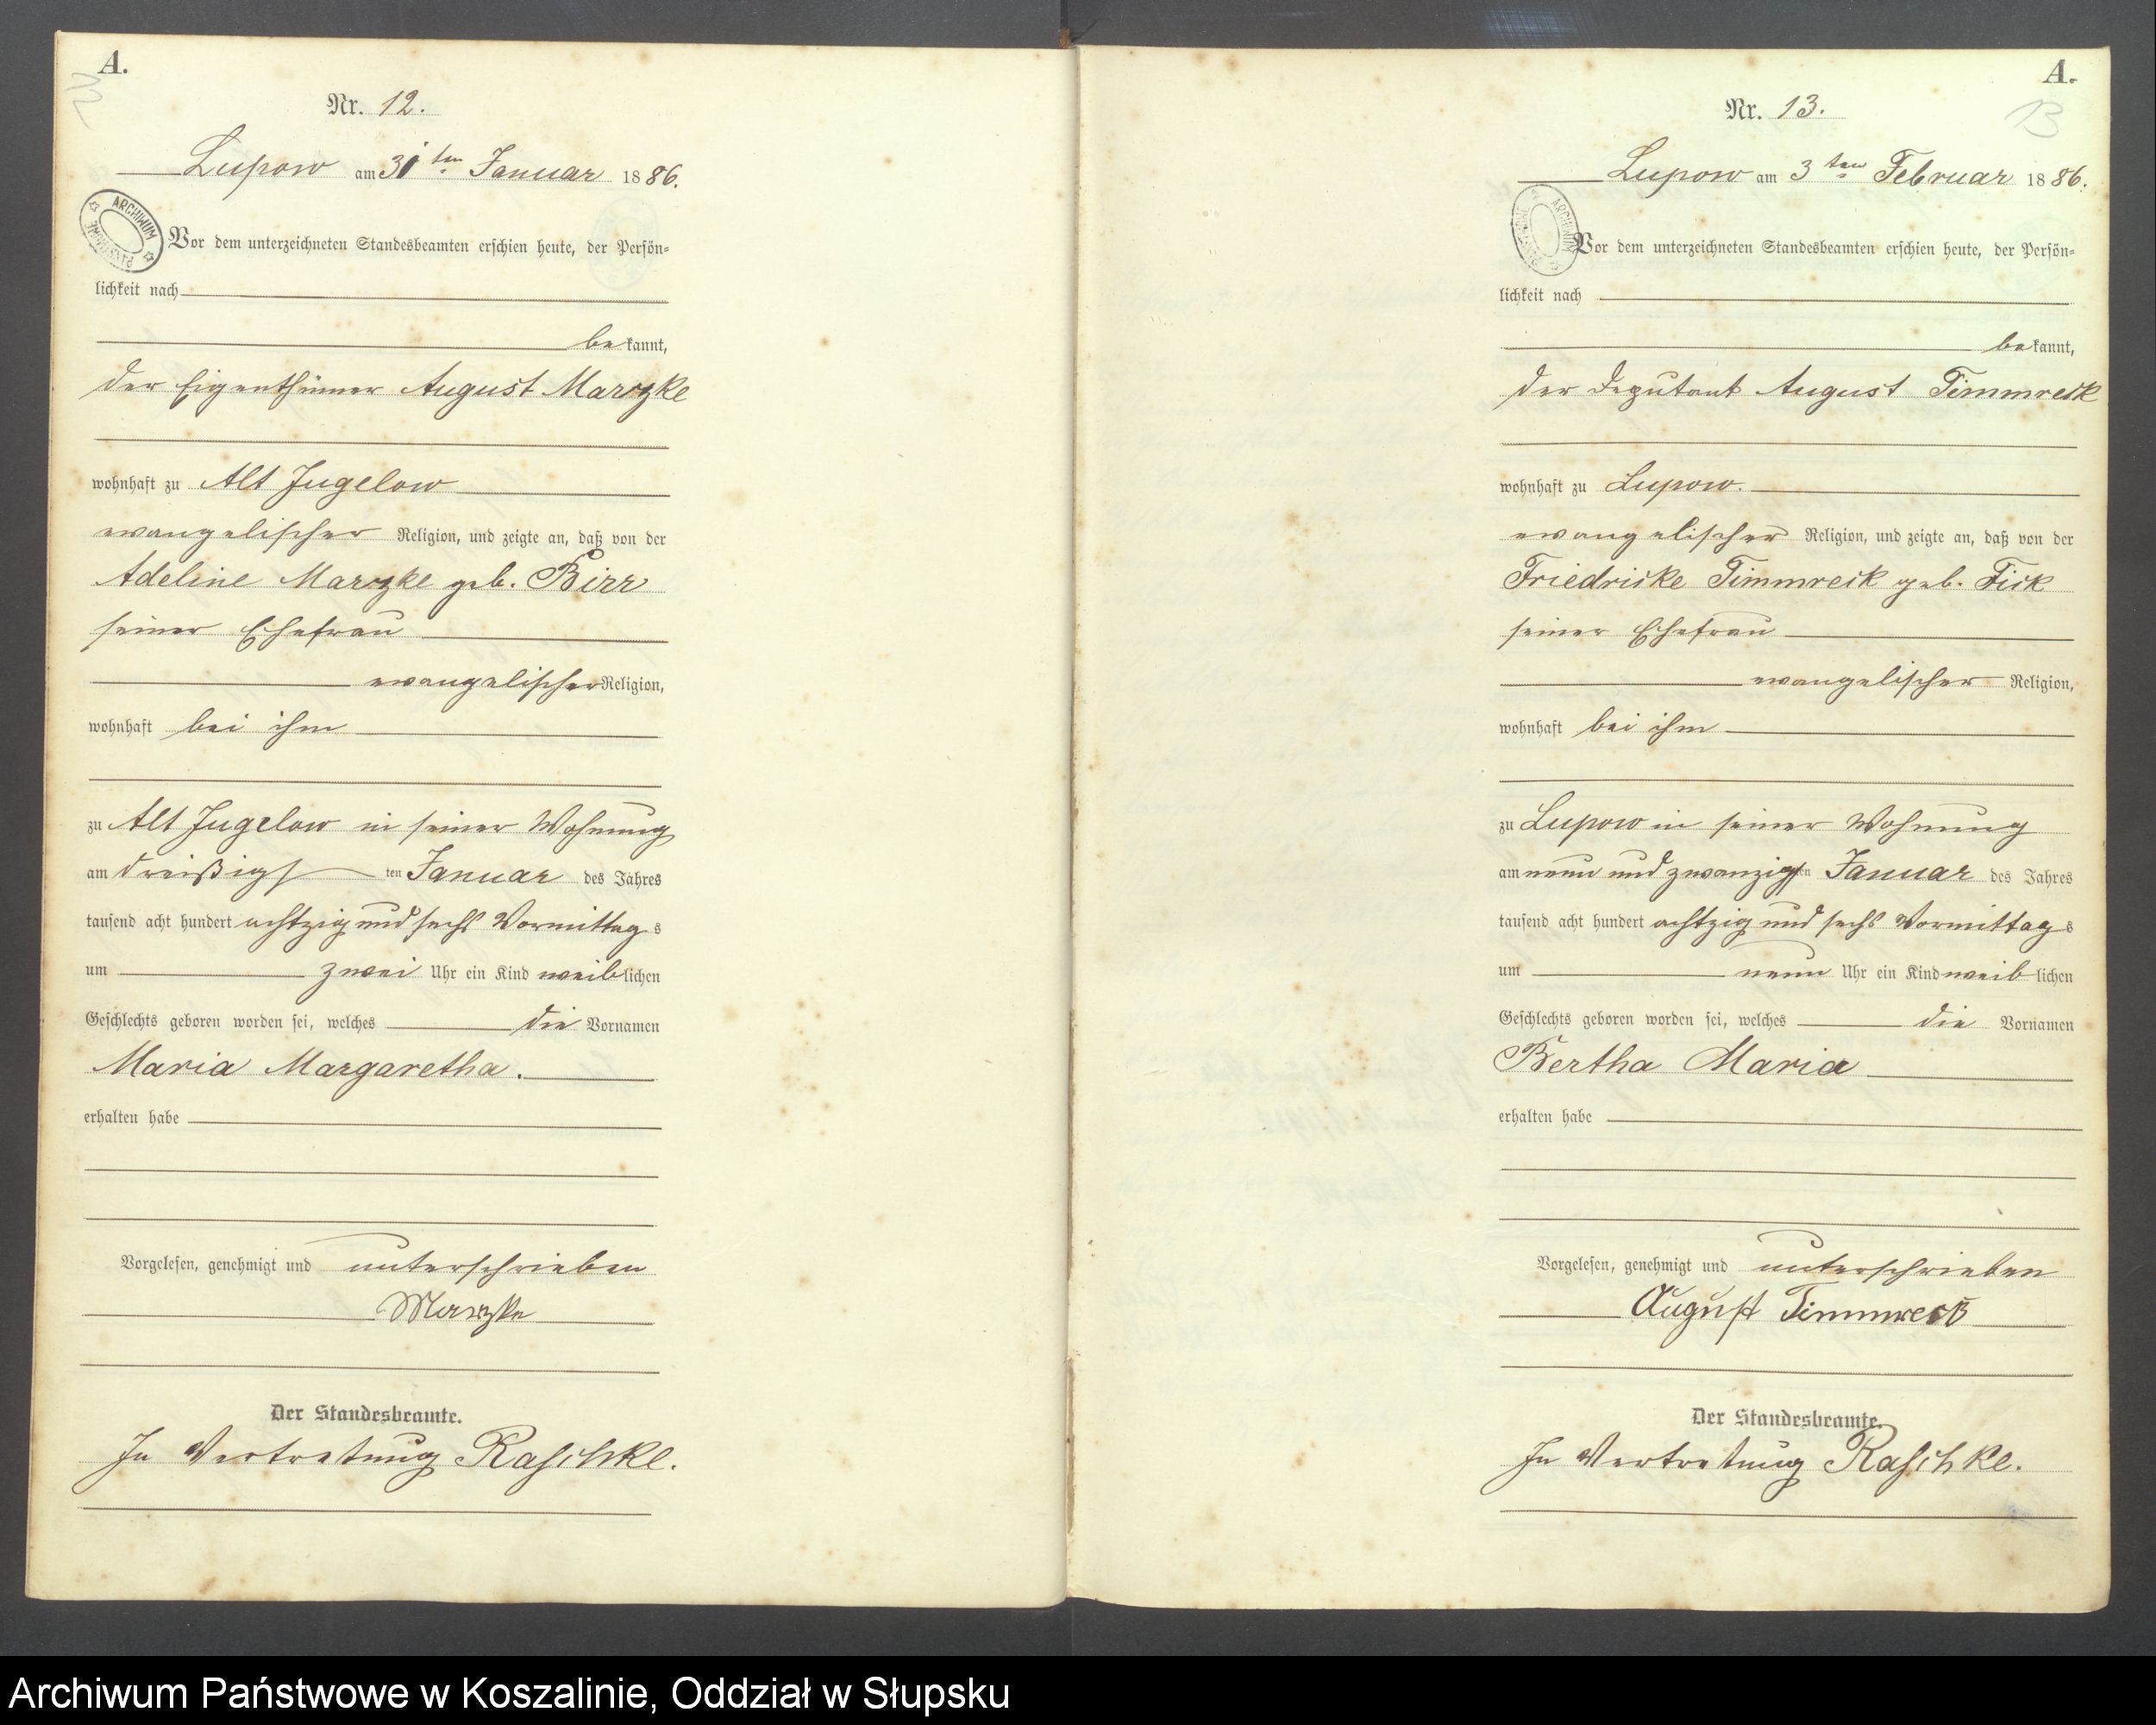 A.
12
Nr. 12.
Lupow am 31ten Januar 1886.
ARCHIWUM PAŃSTWOWE
Vor dem unterzeichneten Standesbeamten erschien heute, der Persön=
lichkeit nach
bekannt,
der Eigenthümer August Marzke
wohnhaft zu Alt Jugelow
evangelischer Religion, und zeigte an, daß von der
Adeline Marzke geb. Birr
seiner Ehefrau
evangelischer Religion,
wohnhaft bei ihm
zu Alt Jugelow in seiner Wohnung
am dreißigsten Januar des Jahres
tausend acht hundert achtzig und sechs Vormittags
um zwei Uhr ein Kind weiblichen
Geschlechts geboren worden sei, welches die Vornamen
Maria Margaretha.
erhalten habe
Vorgelesen, genehmigt und unterschrieben
Marzke
Der Standesbeamte.
In Vertretung Raschke.
A.
13
Nr. 13.
Lupow am 3ten Februar 1886.
ARCHIWUM PAŃSTWOWE
Vor dem unterzeichneten Standesbeamten erschien heute, der Persön=
lichkeit nach
bekannt,
der Deputant August Timmreck
wohnhaft zu Lupow.
evangelischer Religion, und zeigte an, daß von der
Friedricke Timmreck geb. Fick
seiner Ehefrau
evangelischer Religion,
wohnhaft bei ihm
zu Lupow in seiner Wohnung
am neun und zwanzigsten Januar des Jahres
tausend acht hundert achtzig und sechs Vormittags
um neun Uhr ein Kind weiblichen
Geschlechts geboren worden sei, welches die Vornamen
Bertha Maria
erhalten habe
Vorgelesen, genehmigt und unterschrieben
August Timmreck
Der Standesbeamte.
In Vertretung Raschke.
Archiwum Państwowe w Koszalinie, Oddział w Słupsku